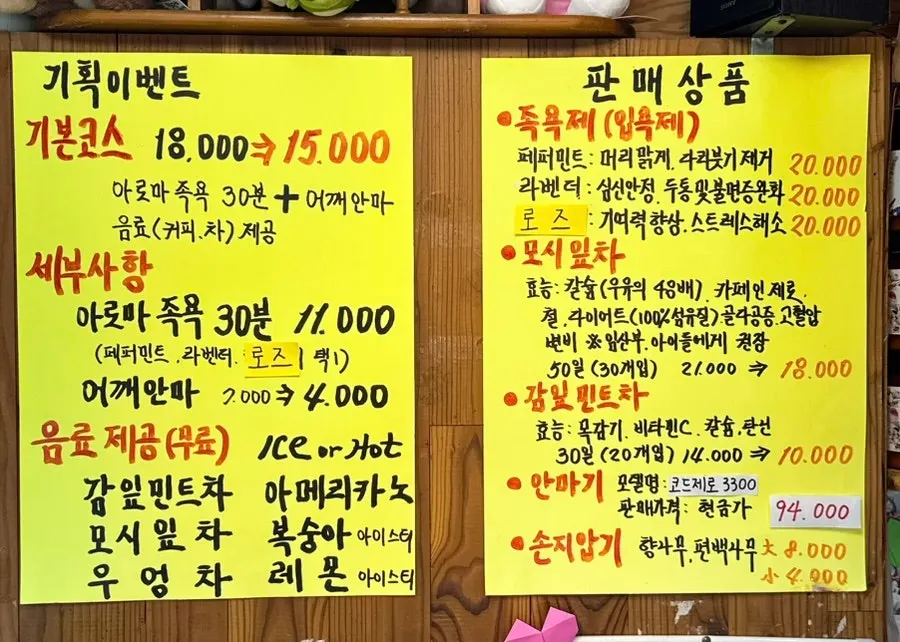 기획이벤트
기본코스 18,000⇒15.000
아로마 족욕 30분 + 어깨안마
음료(커피.차) 제공
세부사항
아로마 족욕 30분 11.000
(페퍼민트.라벤더. 로즈 택1)
어깨안마 7.000⇒4.000
음료 제공(무료) ICE or Hot
감잎민트차 아메리카노
모시잎차 복숭아 아이스티
우엉차 레몬 아이스티
판매상품
• 족욕제 (입욕제)
페퍼민트: 머리맑게, 다리붓기제거 20.000
라벤더: 심신안정, 두통및불면증완화 20.000
로즈: 기억력향상.스트레스해소 20.000
• 모시잎차
효능: 칼슘(우유의 48배). 카페인제로,
철.다이어트(100%섬유질)골다공증.고혈압
변비 ※임산부.아이들에게 권장
50일(30개입) 21.000 ⇒ 18.000
• 감잎민트차
효능: 목감기. 비타민C. 칼슘.탄신
30일(20개입) 14.000 ⇒ 10.000
• 안마기 모델명: 코드제로 3300
판매가격: 현금가 94.000
• 손지압기 향나무,편백나무 大 8.000
小 4.000
SONY